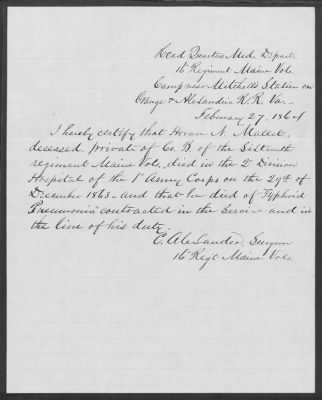 Head Quarters Med. Depart.
16 Regiment Maine Vols.
Camp near Mitchells Station on
Orange & Alexandria R.R. Va.
February 27, 1864
I hereby certify that N.
deceased private of Co. B. of the Sixteenth
regiment Maine Vols, died in the 2d Division
Hospital of the 1st Army Corps on the 29th of
December 1863 and that he died of Typhoid
Pneumonia contracted in the Service and in
the line of his duty.
C. Alexander, Surgeon
16 Regt Maine Vols.